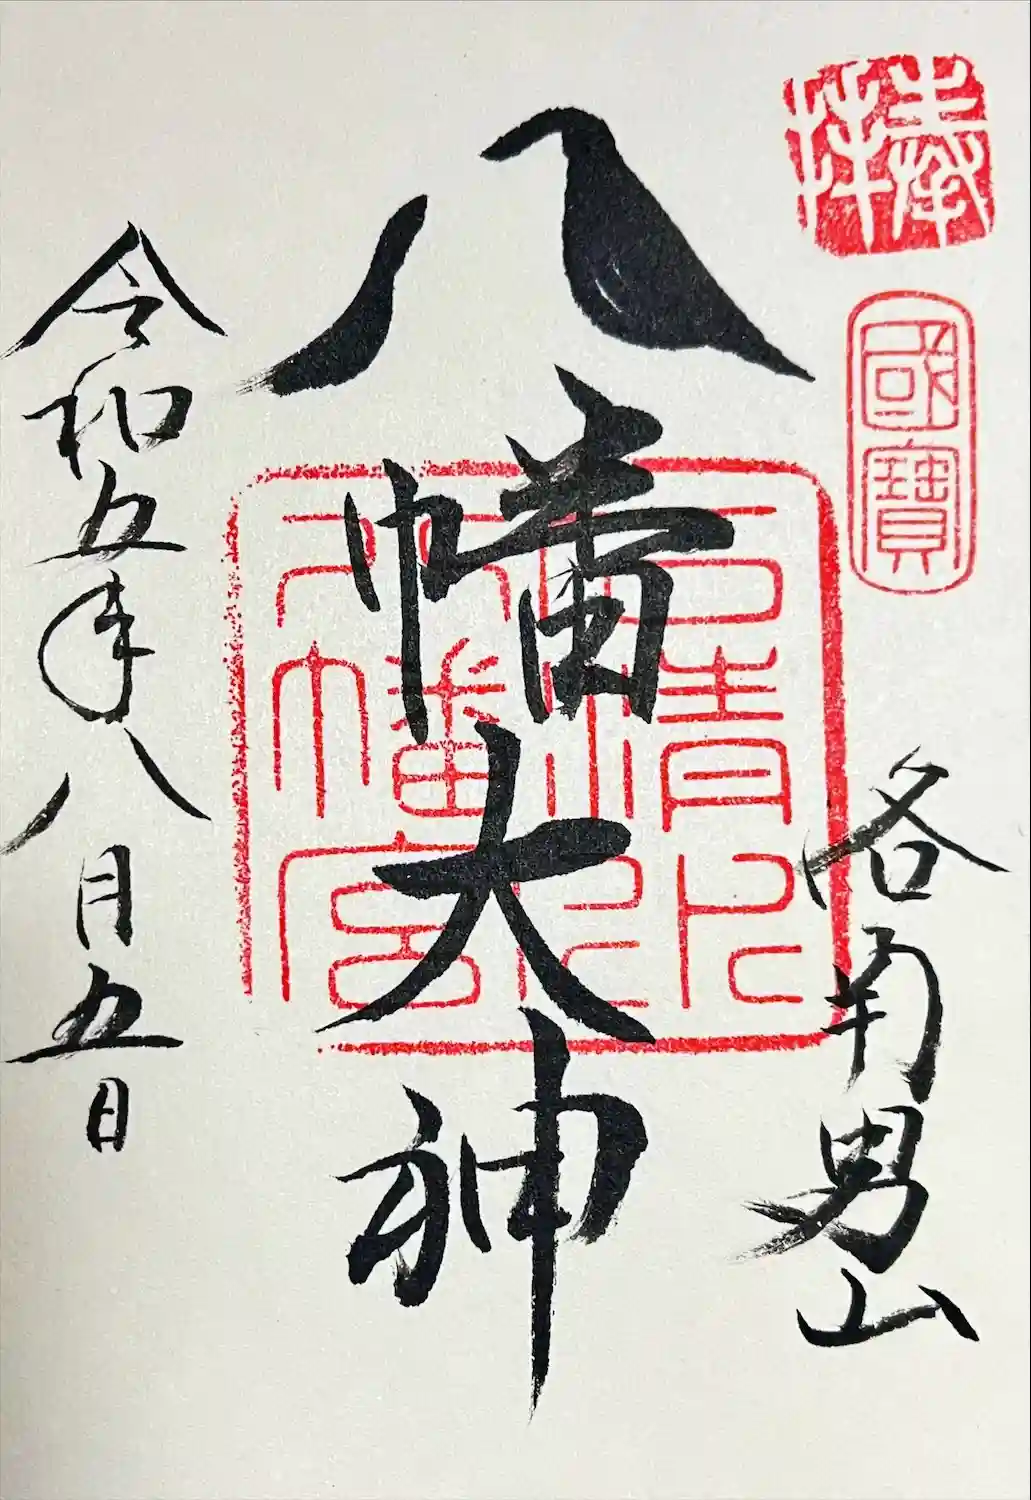 奉拝
國寶
洛南男山
八幡大神
石清水
八幡宮
令和五年八月五日